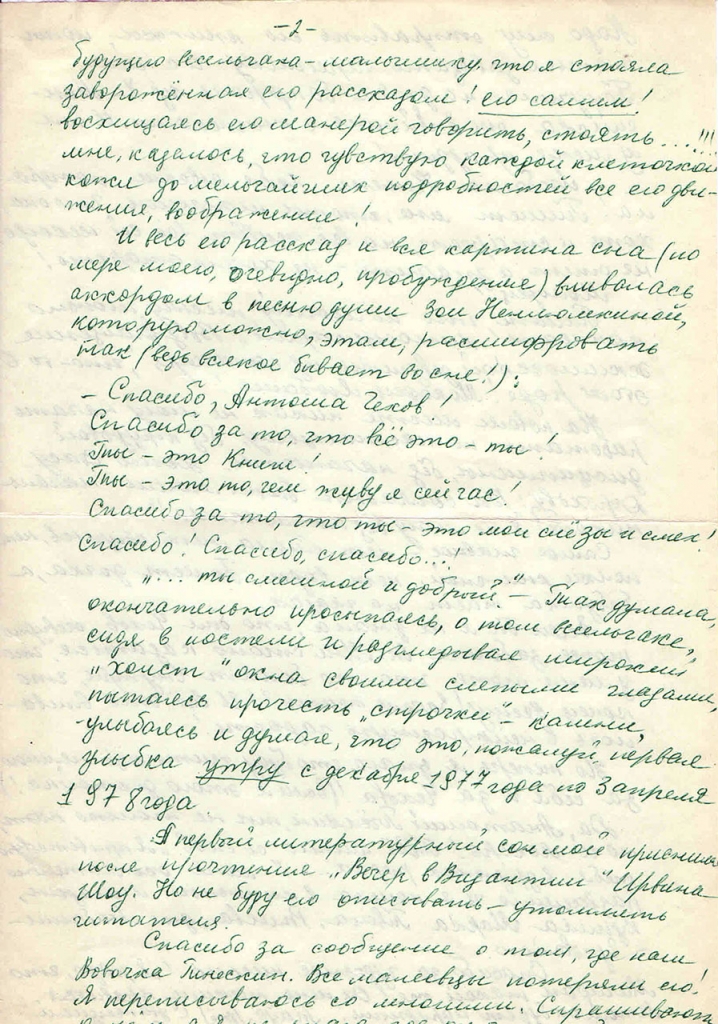 -2-
будущего весельчака-мальчишку, что я стояла
заворожённая его рассказом! его самим!
восхищаясь его манерой говорить, стоять....!!!
мне, казалось, что чувствую каждой клеточкой
кожи до мельчайших подробностей все его дви-
жения, воображение!
И весь его рассказ и вся картина сна (по
мере моего, очевидно, пробуждение) вливалась
аккордом в песню души Зои
которую можно, этам, расшифровать
так (ведь всякое бывает во сне!):
- Спасибо, Антоша Чехов
Спасибо за то, что всё это - ты!
Ты - это Книги!
Ты - это то, чем живу я сейчас!
Спасибо за то, что ты - это мои слёзы и смех!
Спасибо! Спасибо, спасибо...!
"... ты смешной и добрый?" - Так думала,
окончательно просыпаясь, о том весельчаке,
сидя в постели и разглядывая широкий
"холст" окна своими слепыми глазами,
пытаясь прочесть "строчки" - камни,
улыбаясь и думая, что это, пожалуй, первая
улыбка утру с декабря 1977 года по 3 апреля
1978 года
А первый литературный сон мой приснился
после прочтения "Вечер в Византии" Ирвина
Шоу. Но не буду его описывать - утомлять
читателя.
Спасибо за сообщение о том, где наш
Вовочка Гинескин. Все малеевцы потеряли его!
Я переписываюсь со многими. Спрашивают